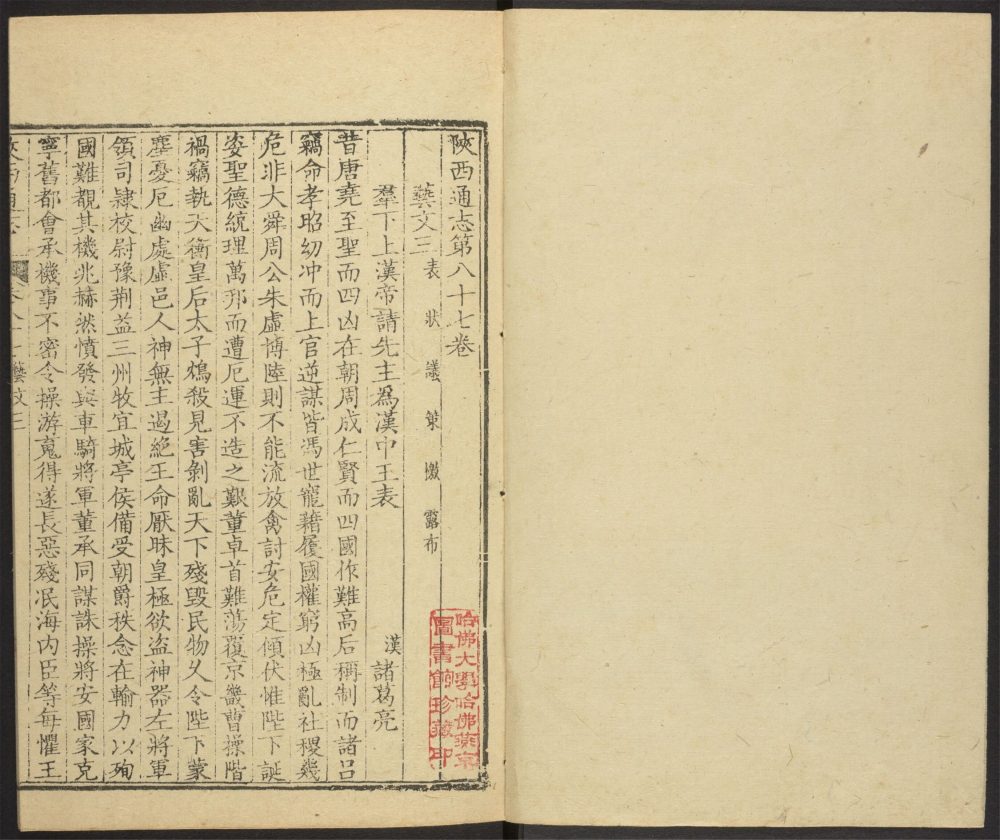 陝西通志第八十七卷
藝文三 表 狀 議 策 檄 露布
羣下上漢帝請先主爲漢中王表
漢 諸葛亮
昔唐堯至聖而四凶在朝周成仁賢而四國作難高后稱制而諸呂
竊命孝昭幼冲而上官逆謀皆馮世寵藉履國權窮凶極亂社稷幾
危非大舜周公朱虛博陸則不能流放禽討安危定傾伏惟陛下誕
姿聖德統理萬邦而遭厄運不造之艱董卓首難蕩覆京畿曹操階
禍竊執天衡皇后太子鴆殺見害剝亂天下殘毀民物乆令陛下蒙
塵憂厄幽處虛邑人神無主遏絕王命厭昧皇極欲盗神器左將軍
領司隷校尉豫荆益三州牧宜城亭侯備受朝爵秩念在輸力以殉
國難覩其機兆赫然憤發與車騎將軍董承同謀誅操將安國家克
寧舊都會承機事不密令操游䰟得遂長惡殘泯海內臣等每懼王
藝文三
哈佛大學哈佛燕京
圖書館珍藏印